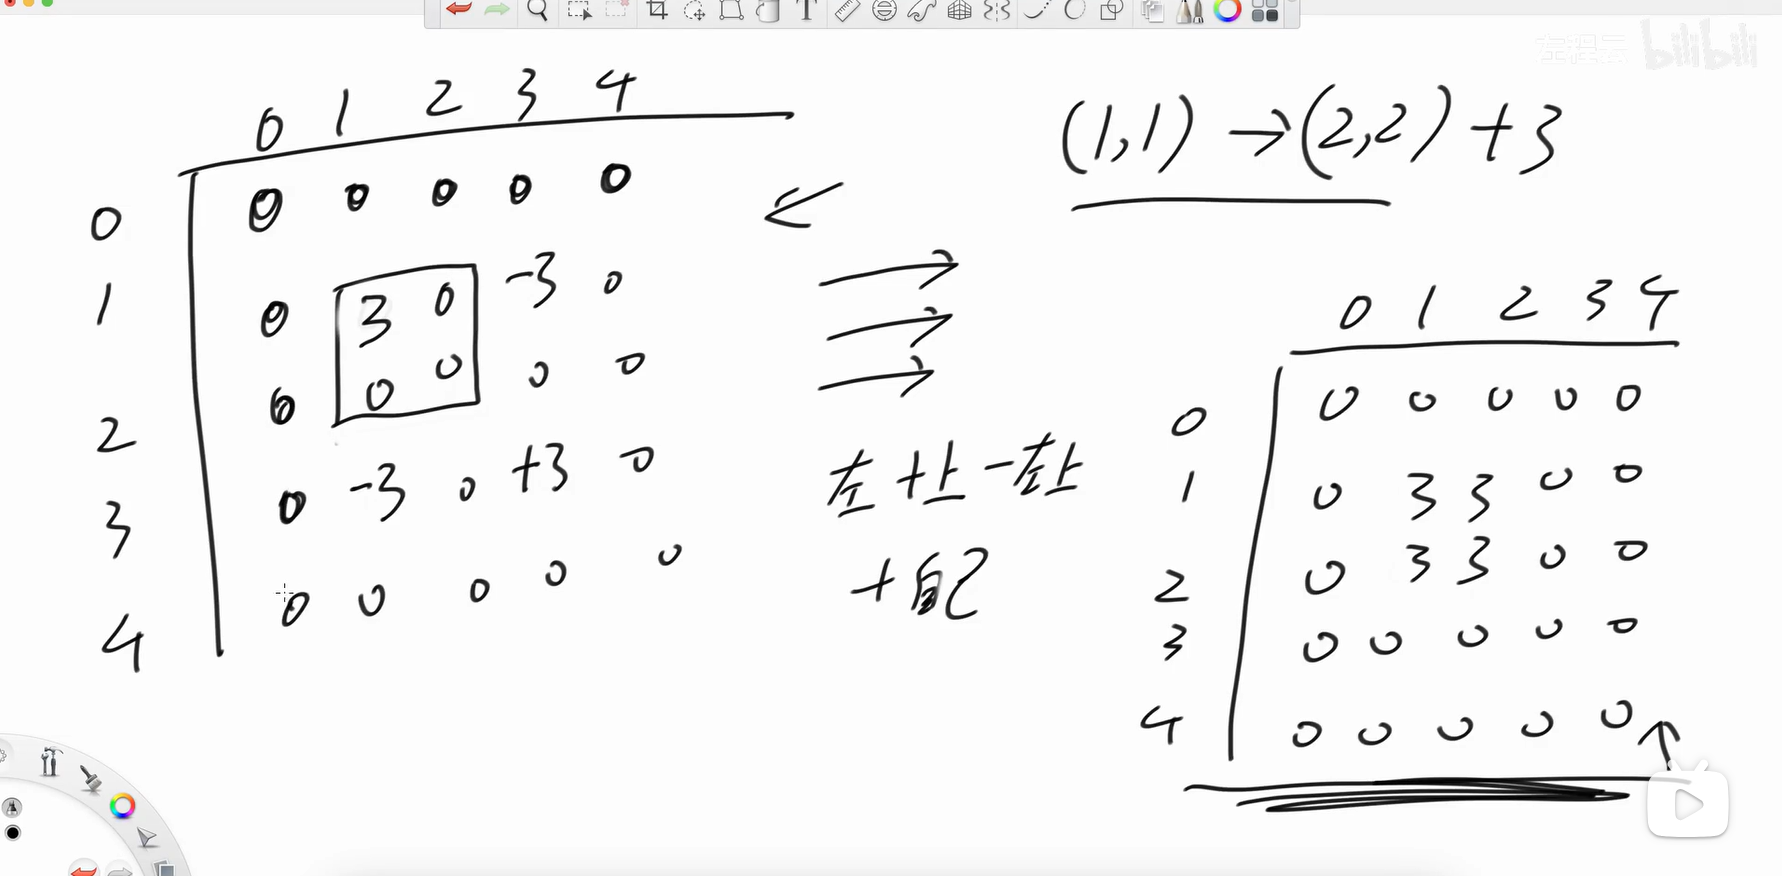 左程云 bilibili
0 1 2 3 4
0 0 0 0 0 0
1 0 3 0 -3 0
2 0 0 0 0 0
3 0 -3 0 +3 0
4 0 0 0 0 0
(1,1) → (2,2) + 3
左 + 上 - 左上
+ 自己
0 1 2 3 4
0 0 0 0 0 0
1 0 3 3 0 0
2 0 3 3 0 0
3 0 0 0 0 0
4 0 0 0 0 0